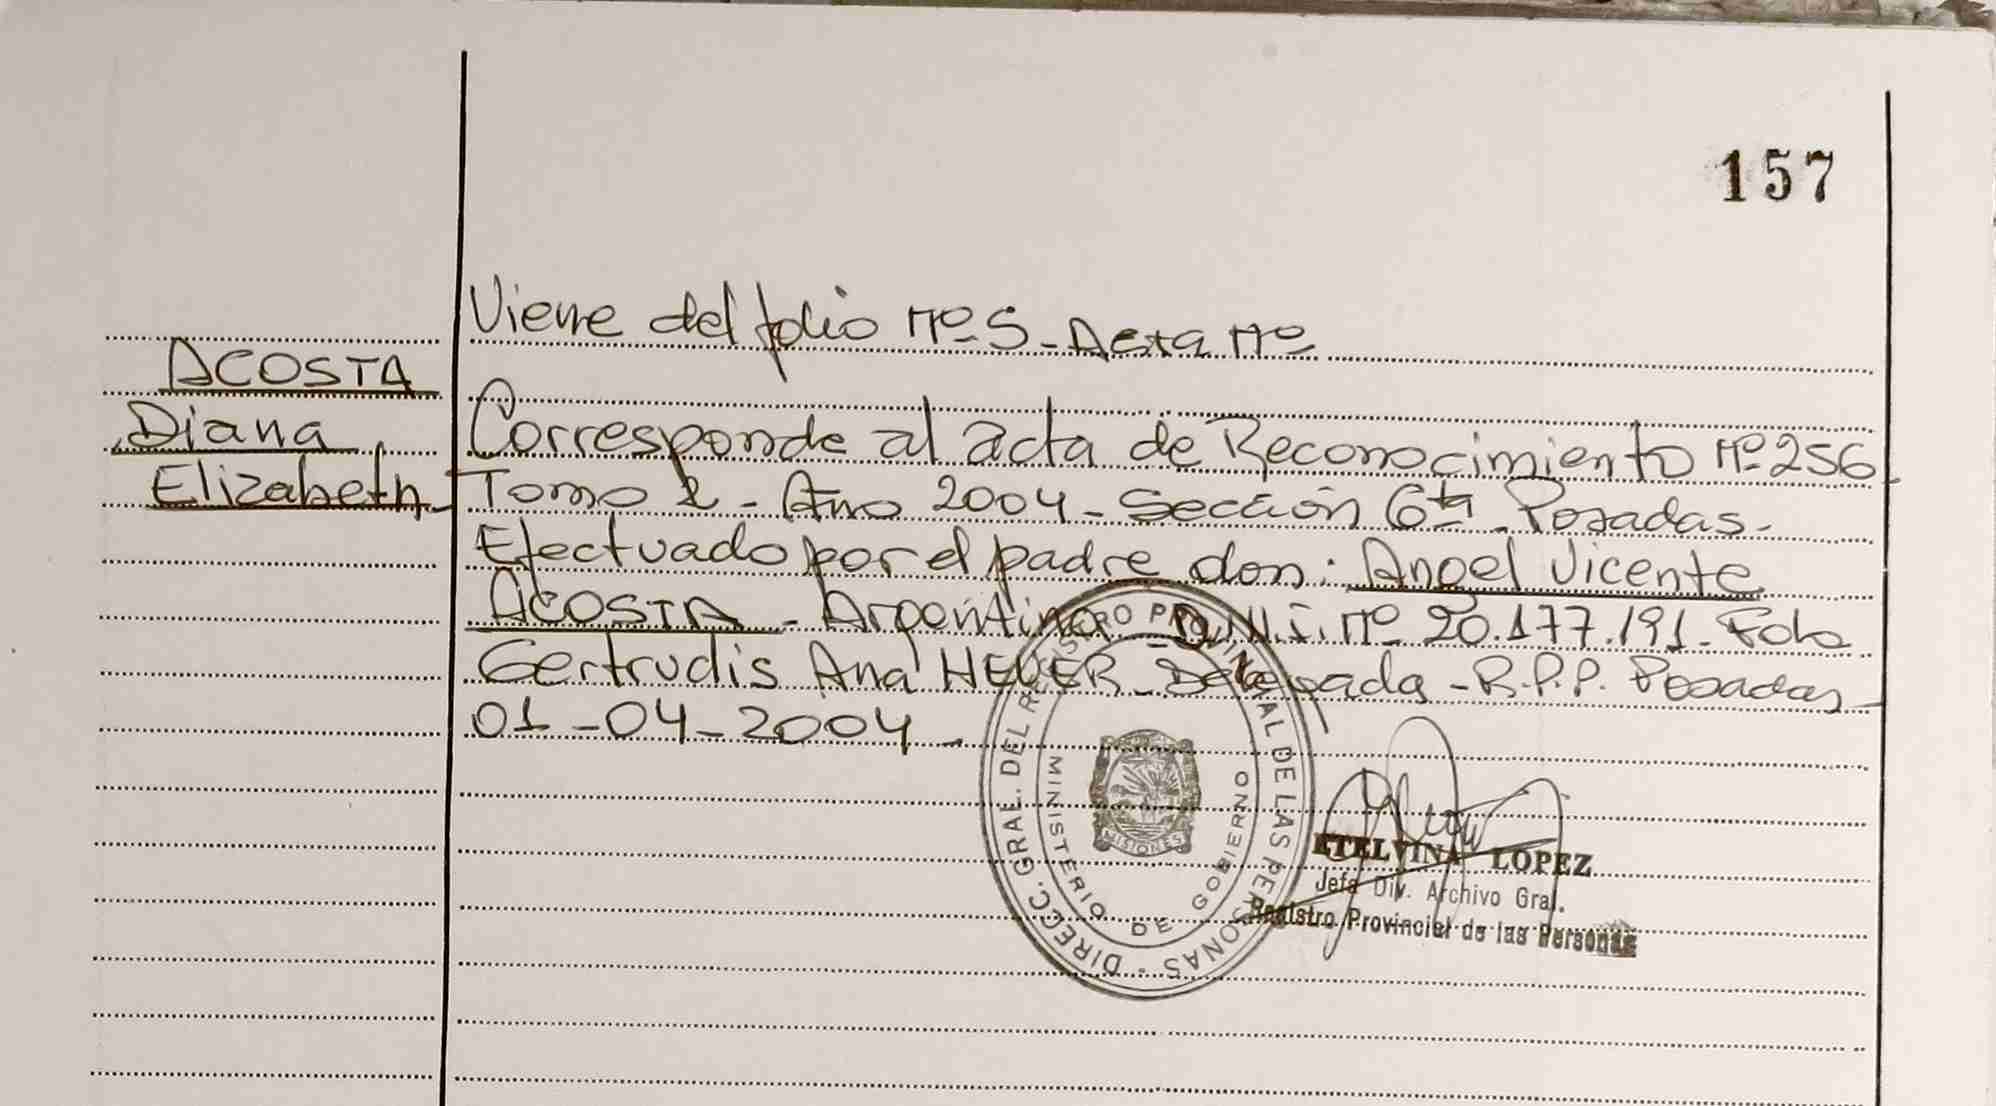 157
Viene del folio Nº 5 - Acta Nº
ACOSTA
Diana
Elizabeth -
Corresponde al acta de Reconocimiento Nº 256 -
Tomo 2 - Año 2004 - Sección 6ta - Posadas -
Efectuado por el padre don: Angel Vicente
ACOSTA - Argentino - D.N.I. Nº 20.177.191 - Fdo
Gertrudis Ana - Delegada - R.P.P. Posadas -
01-04-2004 -
DIRECC. GRAL. DEL REGISTRO PROVINCIAL DE LAS PERSONAS -
MINISTERIO DE GOBIERNO
MISIONES
ETELVINA LOPEZ
Jefa Div. Archivo Gral.
Registro Provincial de las Personas